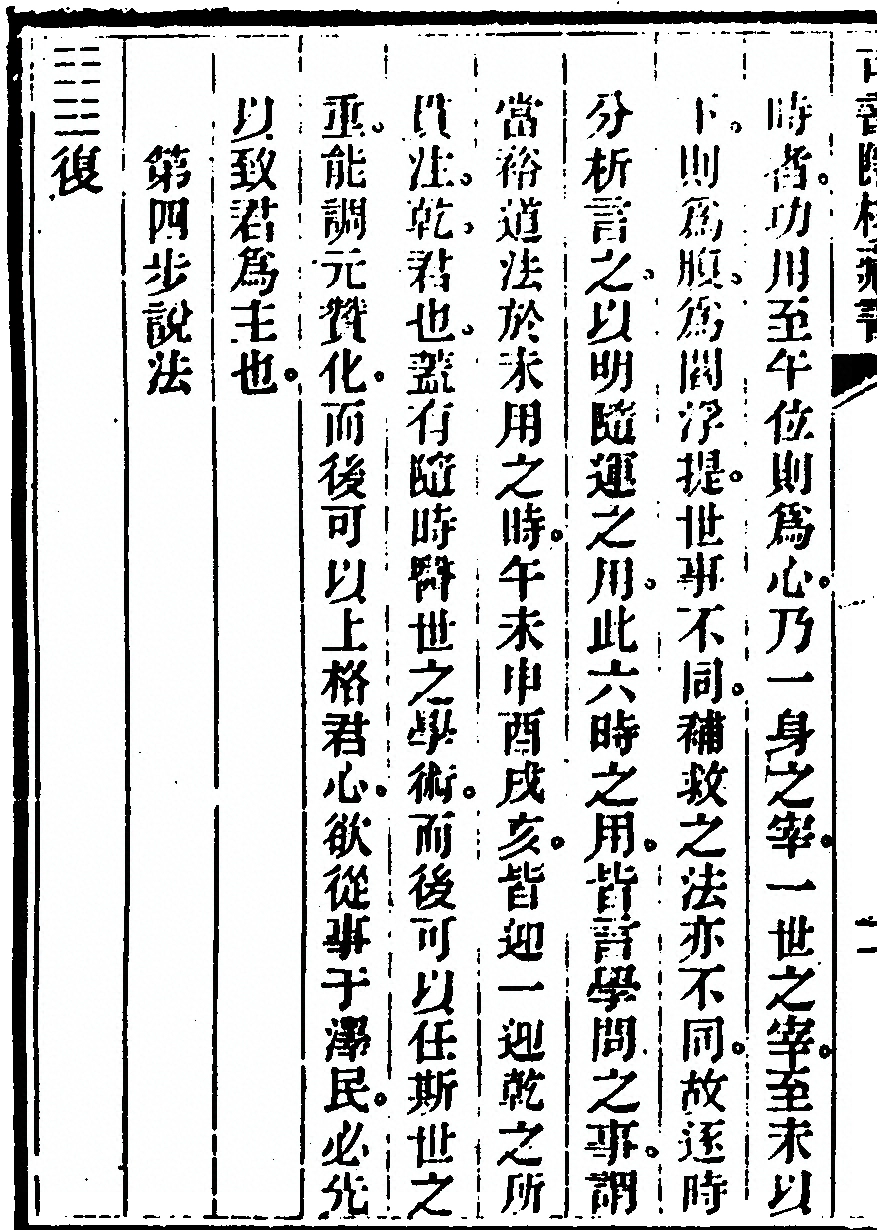 時者。功用至午位則爲心。乃一身之宰。一世之宰。至未以
下。則爲腹。爲閻浮提。世事不同。補救之法亦不同。故逐時
分析言之。以明隨運之用。此六時之用。皆言學問之事。謂
當裕道法於未用之時。午未申酉戌亥。皆迎一迎乾之所
貫注。乾。君也。蓋有隨時醫世之學術。而後可以任斯世之
重。能調元贊化。而後可以上格君心。欲從事于澤民。必先
以致君爲主也。
第四步說法
䷗復
二